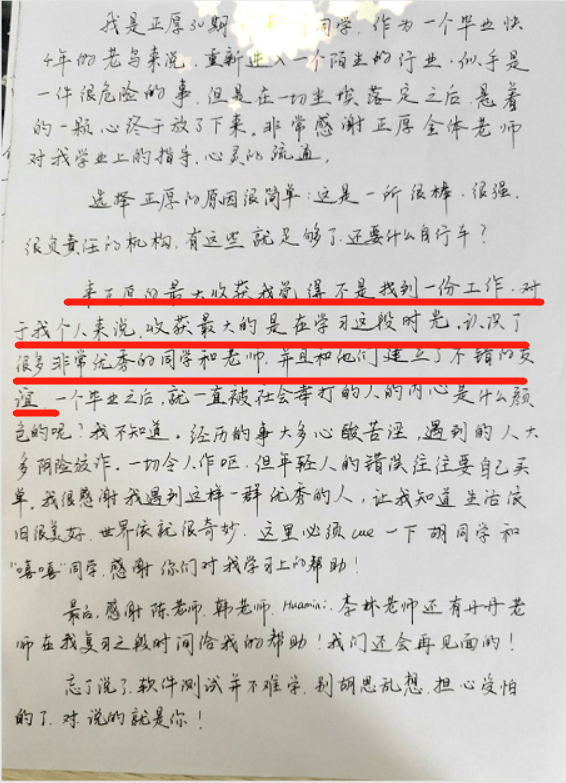 我是正厚30期 同学,作为一个毕业快
4年的老鸟来说,重新进入一个陌生的行业,似乎是
一件很危险的事,但是在一切尘埃落定之后,悬着
的一颗心终于放了下来。非常感谢正厚全体老师
对我学业上的指导,心灵的疏通。
选择正厚的原因很简单:这是一所很棒、很强、
很负责任的机构,有这些就足够了,还要什么自行车?
来正厚的最大收获我觉得不是找到一份工作,对
于我个人来说,收获最大的是在学习这段时光,认识了
很多非常优秀的同学和老师,并且和他们建立了不错的友
谊。一个毕业之后,就一直被社会毒打的人的内心是什么颜
色的呢?我不知道。经历的事大多心酸苦涩,遇到的人大
多阴险狡诈。一切令人作呕,但年轻人的错误往往要自己买
单。我很感谢我遇到这样一群优秀的人,让我知道生活依
旧很美好,世界依就很奇妙。这里必须cue一下胡同学和
"嘻嘻"同学,感谢你们对我学习上的帮助!
最后,感谢陈老师,韩老师,Huamini,李林老师还有丹丹老
师在我复习之段时间给我的帮助!我们还会再见面的!
忘了说了,软件测试并不难学,别胡思乱想,担心受怕
的了,对,说的就是你!